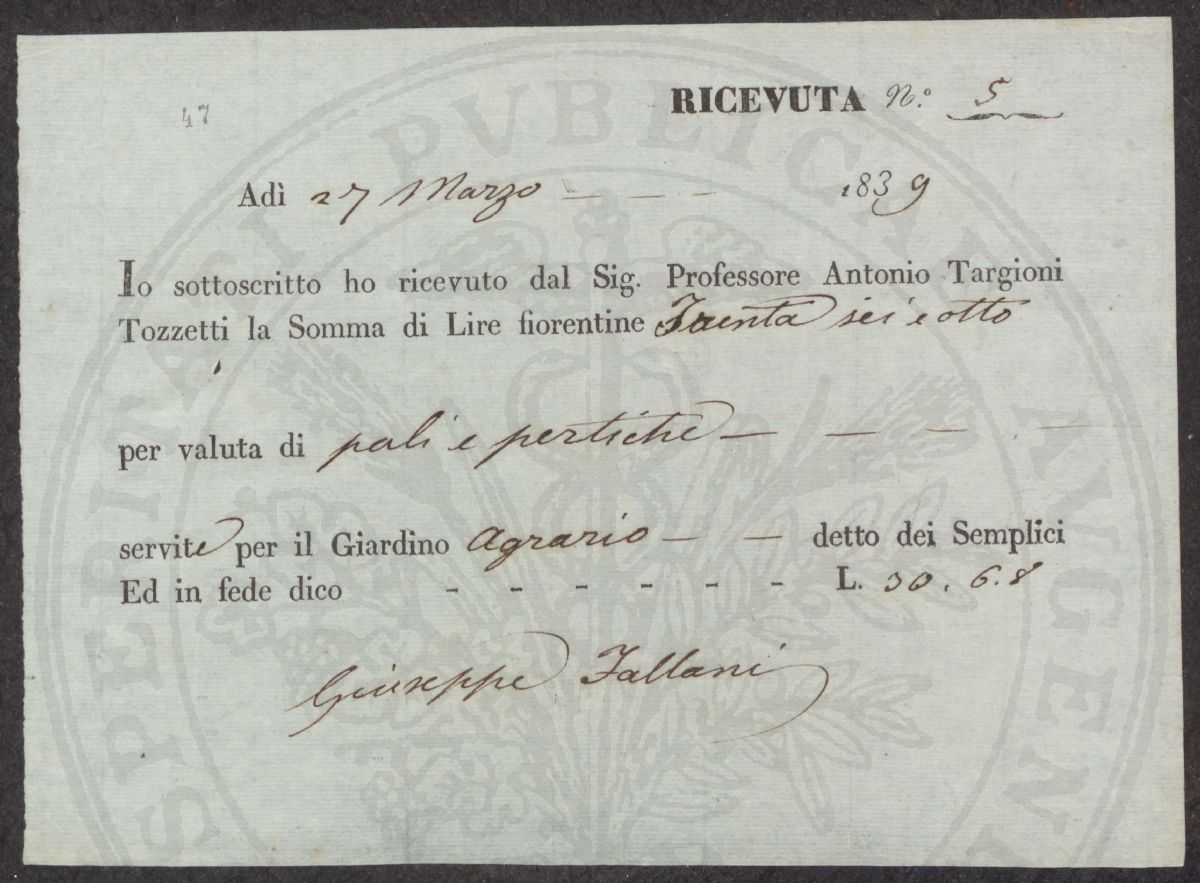 47
RICEVUTA N.º 5
Adì 27 Marzo — — — 1839
Io sottoscritto ho ricevuto dal Sig. Professore Antonio Targioni
Tozzetti la Somma di Lire fiorentine Trenta sei e otto
per valuta di pali e pertiche — — — — —
servite per il Giardino Agrario — — detto dei Semplici
Ed in fede dico - - - - - - L. 30. 6. 8
Giuseppe Fallani
PROSPERITATI PVBLICAE AVGENDAE